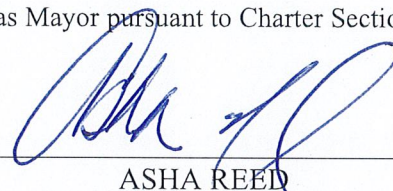 as Mayor pursuant to Charter Sectio
Asha
ASHA REED